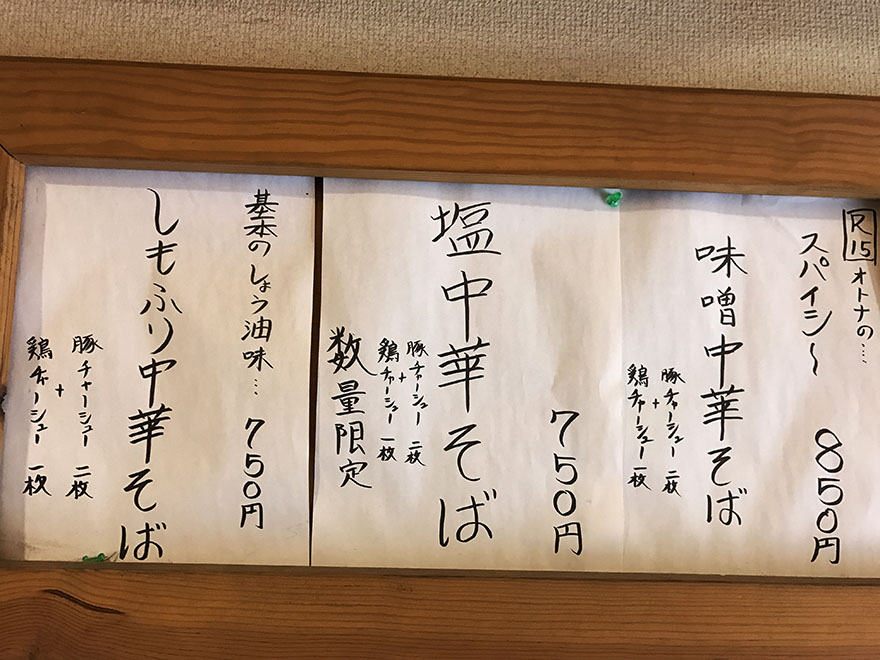 R15 オトナの….
スパイシ〜
850円
味噌中華そば
豚チャーシュー 二枚
+
鶏チャーシュー 一枚
750円
塩中華そば
豚チャーシュー 二枚
+
鶏チャーシュー 一枚
数量限定
基本のしょう油味… 750円
しもふり中華そば
豚チャーシュー 二枚
+
鶏チャーシュー 一枚